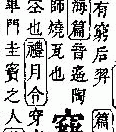 有窮后羿
海篇音遙陶
師燒瓦也
空也禮月令穿
篳門圭竇之人